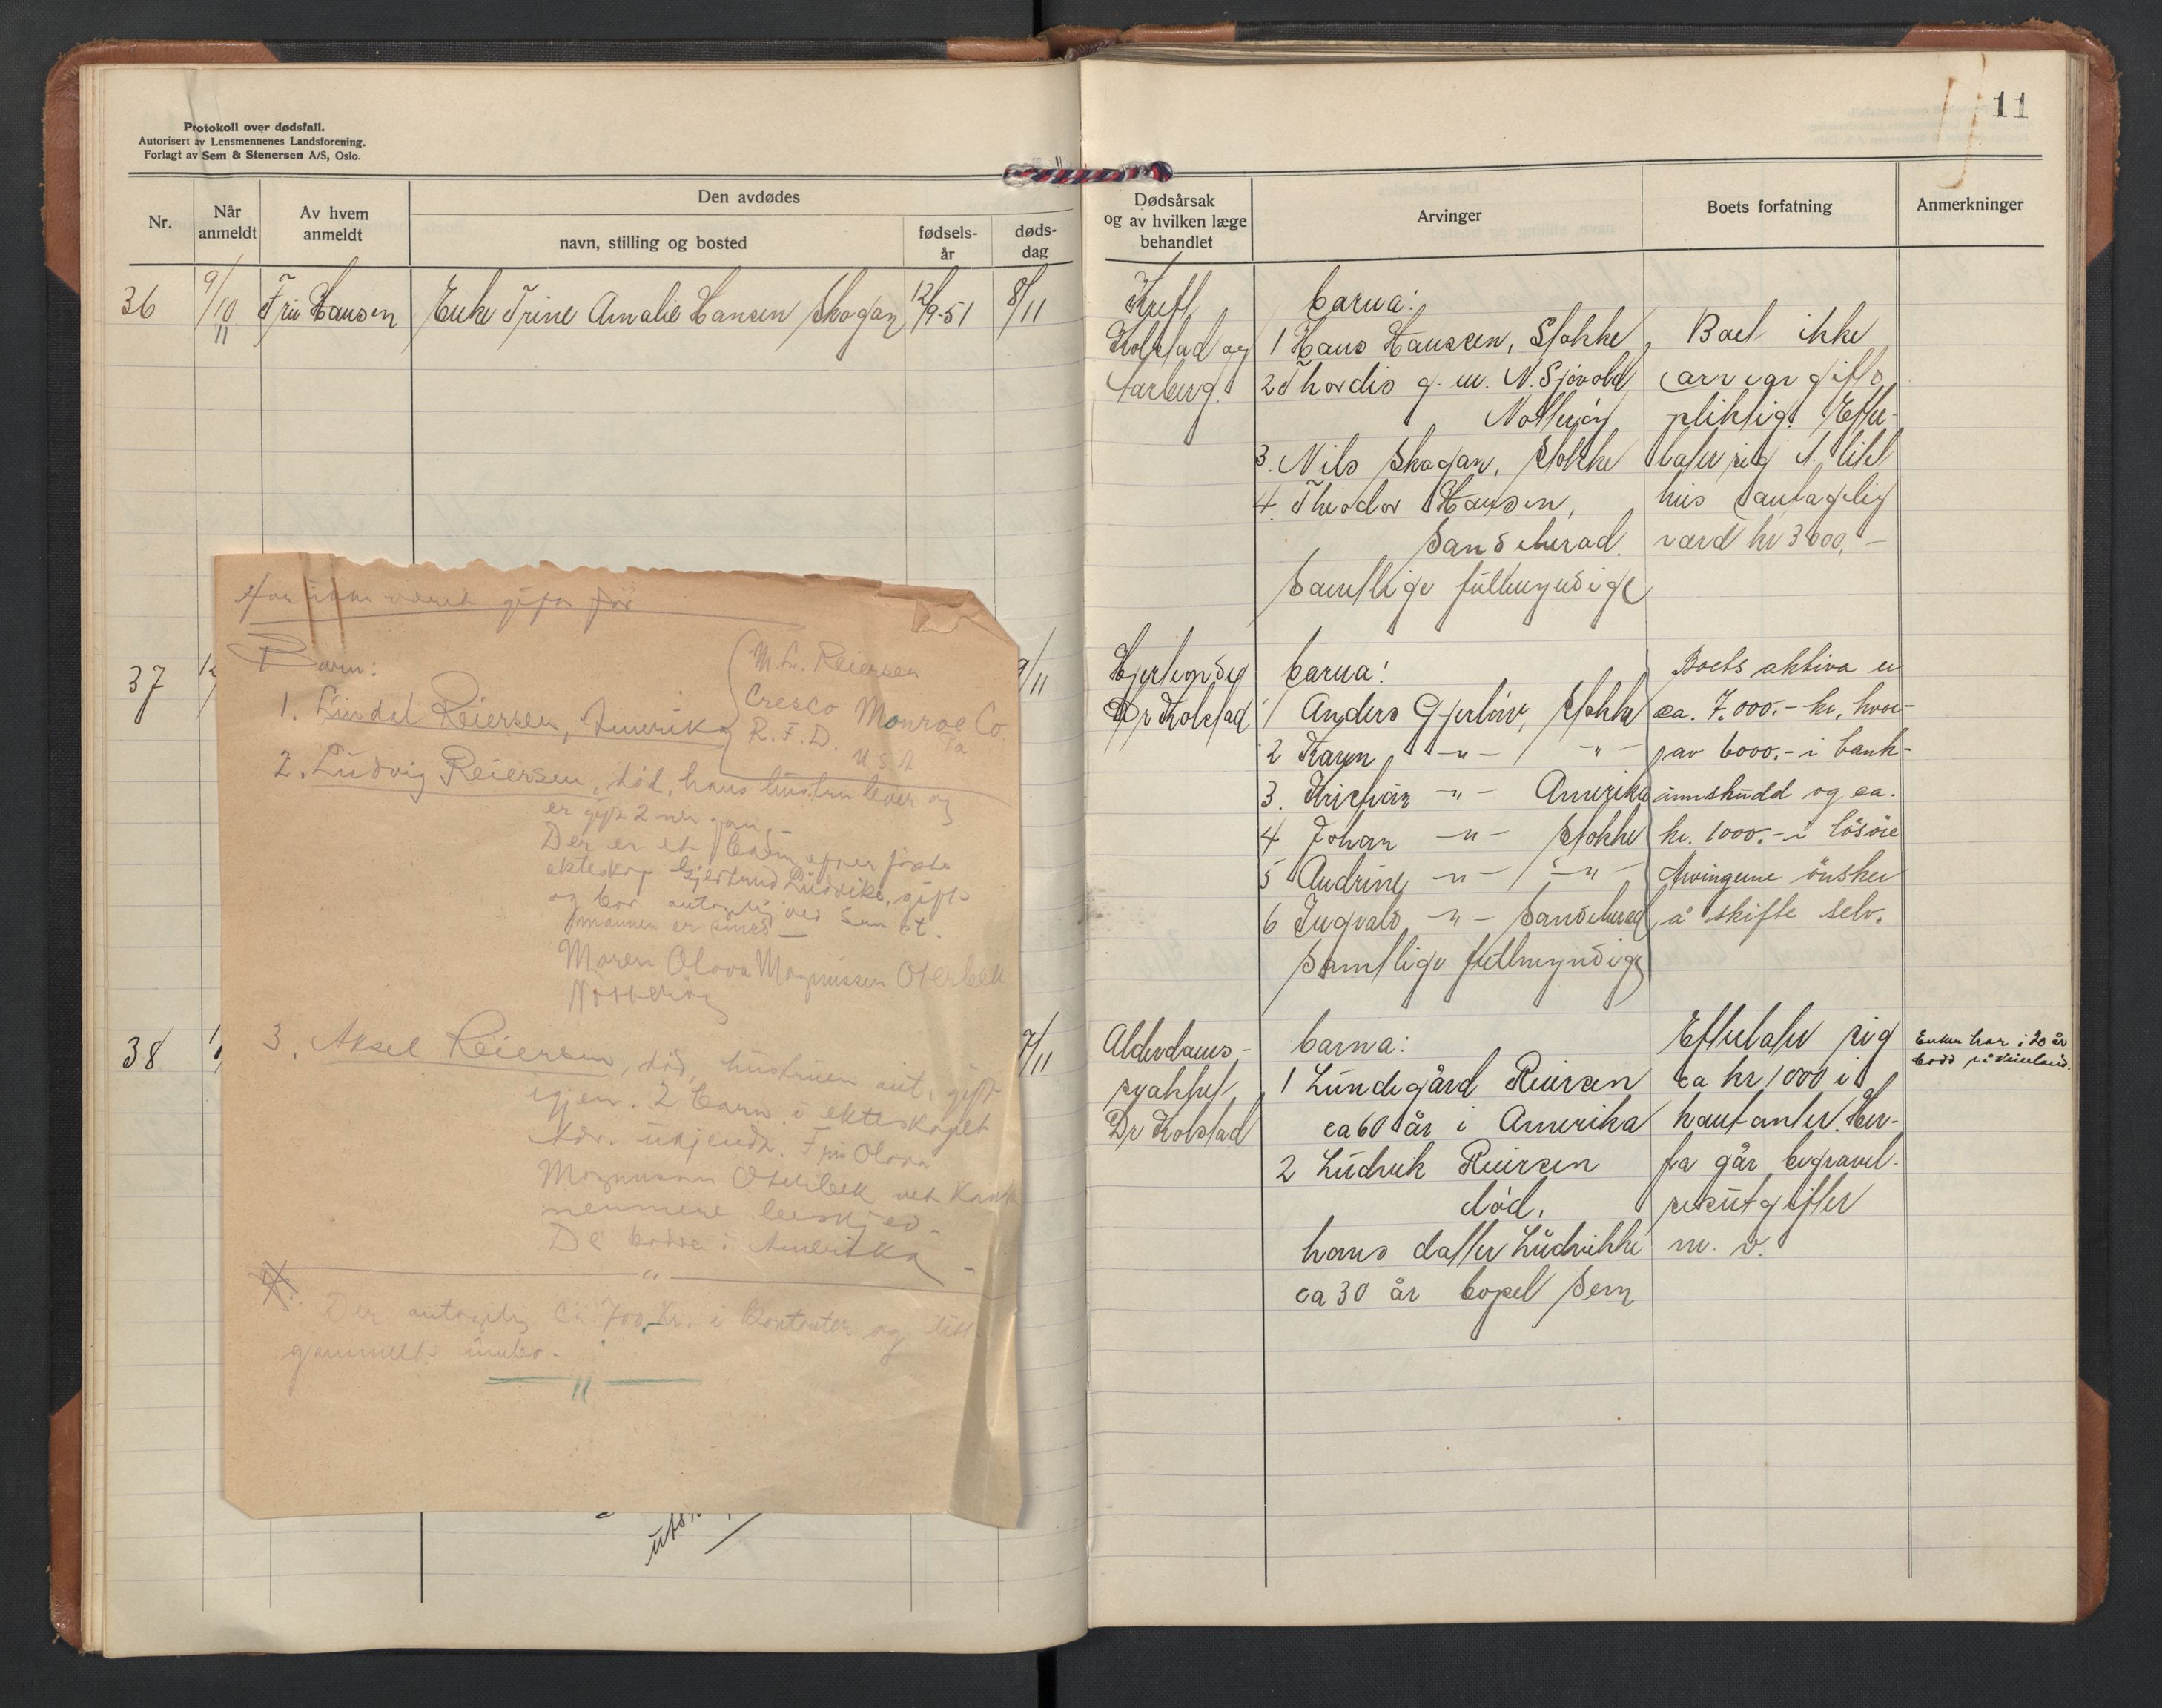 Protokoll over dødsfall.
Autorisert av Lensmennenes Landsforening.
Forlagt av Sem & Stenersen A/S, Oslo.
Nr.
Når anmeldt
Av hvem anmeldt
Den avdødes
navn, stilling og bosted
fødsels-
år
døds-
dag
36
9/10
11
Fru Hansen
Enke Trine Amalie Hansen Skogan
12/9-51
8/11
37
9/11
38
7/11
Har ikke været gift før
Barn:
1. Lindal Reiersen, Amerika
M. L. Reiersen
Cresco Monroe Co.
R.F.D. Pa
U S A
2. Ludvig Reiersen, död, hans hustru lever og
er gift 2 nen gan
Der er et barn efter første
ekteskap Gjertrud Ludvika, gift
og bor antagelig ved Sem st.
mannen er smed
Maren Olava Magnussen Oterbek
Nøtterøy
3. Aksel Reiersen, död, hustruen gift
igjen. 2 barn i ekteskapet
Adr. ukjendt. Fru Olava
Magnussen Oterbek vet
nermere beskjed
De bodde i Amerika
"
Der antagelig Ca 700 Kr. i Kontanter og litt
gammelt innbo.
"
11
Dødsårsak
og av hvilken læge
behandlet
Arvinger
Boets forfatning
Anmerkninger
Kreft,
Kolstad og
Aarberg.
barna:
1 Hans Hansen, Stokke,
2 Thordis g. m. N. Sjøvold
Nøtterøy
3. Nils Skogan, Stokke
4. Theodor Hansen,
Sandeherad.
Samtlige fullmyndige
Boet ikke
arveavgifts
pliktig. Efter-
later sig 1 litet
hus antagelig
værd kr 3000,-
Hjerteonde
Dr Kolstad
barna:
1 Anders Gjerløw, Stokke
2 Karen -"- -"-
3. Kristian -"- Amerika
4 Johan -"- Stokke
5 Andrine -"- -"-
6 Ingvald -"- Sandeherad
Samtlige fullmyndige
Boets aktiva er
ca. 7.000.- kr, hvor-
av 6000.- i bank-
innskudd og ca.
kr. 1000.- i lösöre
Arvingerne önsker
å skifte selv.
Alderdoms-
svakhet,
Dr Kolstad
barna:
1 Lundegård Reiersen
ca 60 år i Amerika
2 Ludvik Reiersen
död.
hans datter Ludvikke
ca 30 år bopel Sem
Efterlater sig
ca kr 1000 i
kontanter. Her-
fra går begravel-
sesutgifter
m. v.
Enken har i 20 år
bodd på